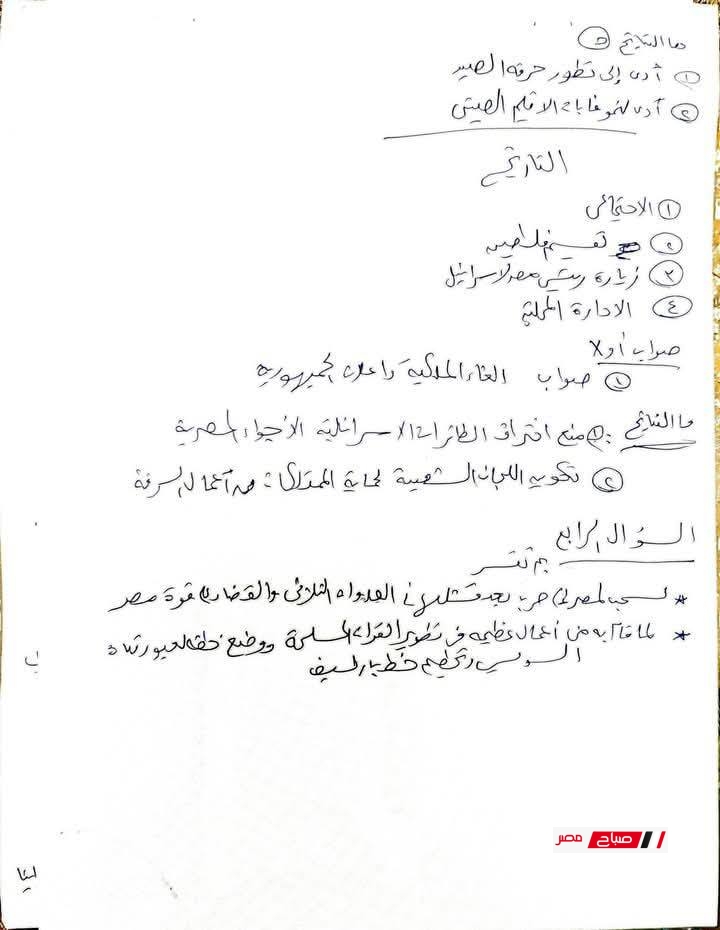 ما النتائج
① أدى إلى تطور حرفة الصيد
② أدى لنمو غابات الاقليم الصيني
التاريخ
① الاجتماعى
② تقسيم فلسطين
③ زيارة رئيس مصر لاسرائيل
④ الادارة المحلية
صواب أولا
① صواب الغاء الملكية واعلان الجمهورية
ما النتائج : ① منع اختراق الطائرات الاسرائلية الأجواء المصرية
② تكوين اللجان الشعبية لحماية الممتلكات من أعمال السرقة
السؤال الرابع
بم تفسر
* لمصر فى حرب بعد فشلها فى العدوان الثلاثى والقضاء على قوة مصر
* لما قام به من أعمال عظيمه فى تطوير القوات المسلحة ووضع خطه لعبور قناة
السويس وتحطيم خط بارليف
صباح مصر